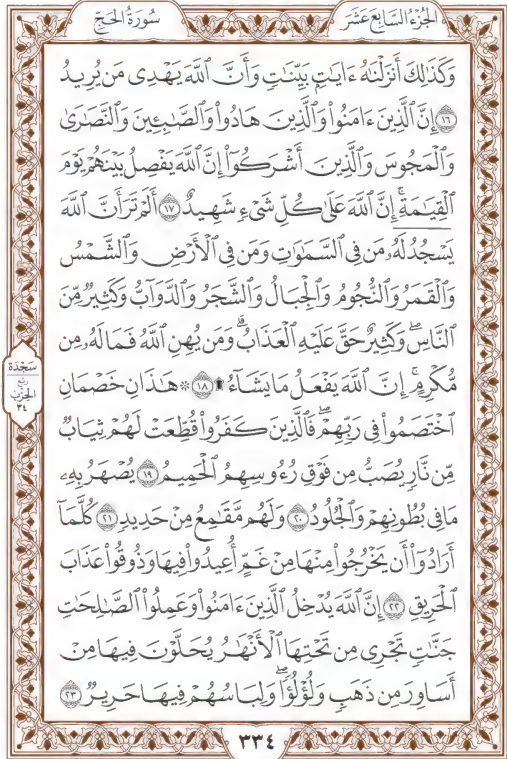 الجُزْءُ السَّابِعَ عَشَرَ
سُورَةُ الحَجِّ
وَكَذَٰلِكَ أَنزَلْنَٰهُ ءَايَٰتٍۭ بَيِّنَٰتٍ وَأَنَّ ٱللَّهَ يَهْدِى مَن يُرِيدُ
١٦ إِنَّ ٱلَّذِينَ ءَامَنُوا۟ وَٱلَّذِينَ هَادُوا۟ وَٱلصَّٰبِـِٔينَ وَٱلنَّصَٰرَىٰ
وَٱلْمَجُوسَ وَٱلَّذِينَ أَشْرَكُوٓا۟ إِنَّ ٱللَّهَ يَفْصِلُ بَيْنَهُمْ يَوْمَ
ٱلْقِيَٰمَةِ ۚ إِنَّ ٱللَّهَ عَلَىٰ كُلِّ شَىْءٍ شَهِيدٌ ١٧ أَلَمْ تَرَ أَنَّ ٱللَّهَ
يَسْجُدُ لَهُۥ مَن فِى ٱلسَّمَٰوَٰتِ وَمَن فِى ٱلْأَرْضِ وَٱلشَّمْسُ
وَٱلْقَمَرُ وَٱلنُّجُومُ وَٱلْجِبَالُ وَٱلشَّجَرُ وَٱلدَّوَآبُّ وَكَثِيرٌ مِّنَ
ٱلنَّاسِ ۖ وَكَثِيرٌ حَقَّ عَلَيْهِ ٱلْعَذَابُ ۗ وَمَن يُهِنِ ٱللَّهُ فَمَا لَهُۥ مِن
مُّكْرِمٍ ۚ إِنَّ ٱللَّهَ يَفْعَلُ مَا يَشَآءُ ۩ ١٨ ۞ هَٰذَانِ خَصْمَانِ
ٱخْتَصَمُوا۟ فِى رَبِّهِمْ ۖ فَٱلَّذِينَ كَفَرُوا۟ قُطِّعَتْ لَهُمْ ثِيَابٌ
مِّن نَّارٍ يُصَبُّ مِن فَوْقِ رُءُوسِهِمُ ٱلْحَمِيمُ ١٩ يُصْهَرُ بِهِۦ
مَا فِى بُطُونِهِمْ وَٱلْجُلُودُ ٢٠ وَلَهُم مَّقَٰمِعُ مِنْ حَدِيدٍ ٢١ كُلَّمَآ
أَرَادُوٓا۟ أَن يَخْرُجُوا۟ مِنْهَا مِنْ غَمٍّ أُعِيدُوا۟ فِيهَا وَذُوقُوا۟ عَذَابَ
ٱلْحَرِيقِ ٢٢ إِنَّ ٱللَّهَ يُدْخِلُ ٱلَّذِينَ ءَامَنُوا۟ وَعَمِلُوا۟ ٱلصَّٰلِحَٰتِ
جَنَّٰتٍ تَجْرِى مِن تَحْتِهَا ٱلْأَنْهَٰرُ يُحَلَّوْنَ فِيهَا مِنْ
أَسَاوِرَ مِن ذَهَبٍ وَلُؤْلُؤًا ۖ وَلِبَاسُهُمْ فِيهَا حَرِيرٌ ٢٣
سَجْدَة
ربع
الحزب
٣٤
٣٣٤